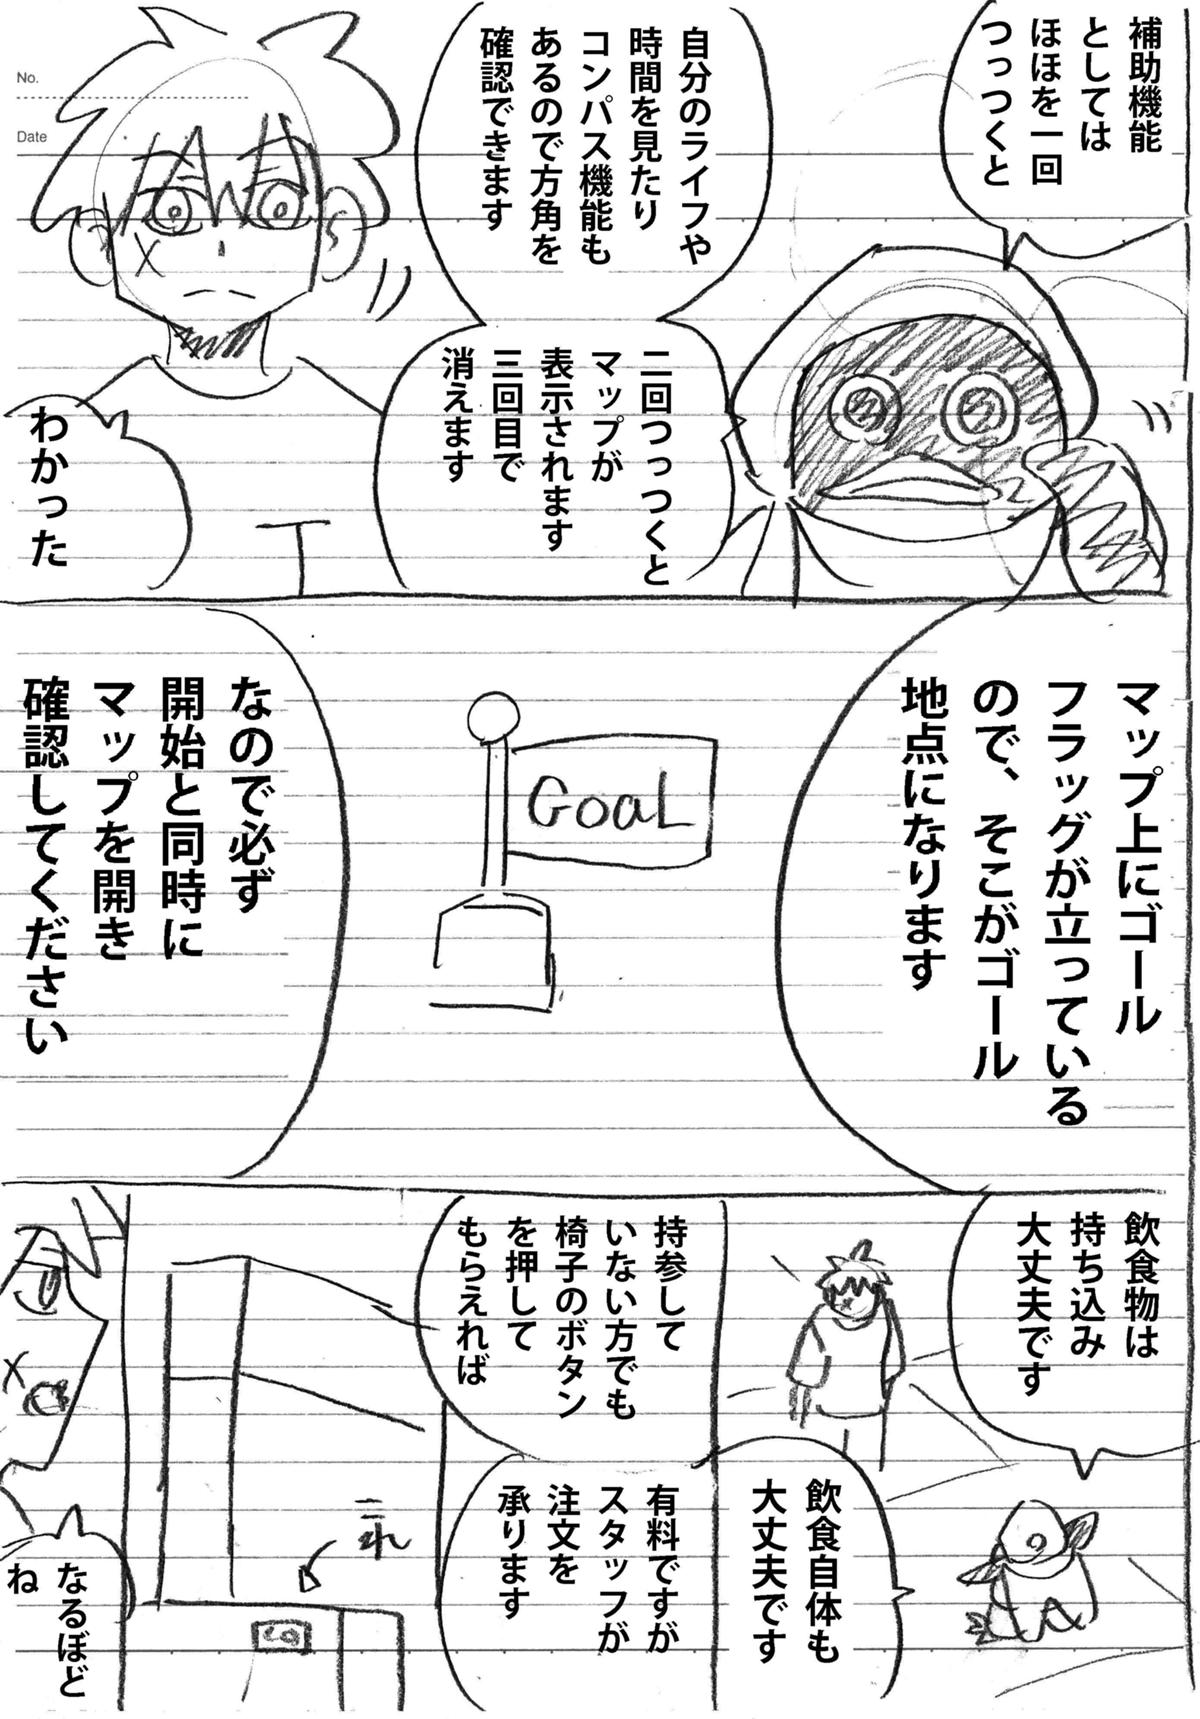 No.
Date
補助機能
としては
ほほを一回
つっつくと
自分のライフや
時間を見たり
コンパス機能も
あるので方角を
確認できます
二回つっつくと
マップが
表示されます
三回目で
消えます
わかった
マップ上にゴール
フラッグが立っている
ので、そこがゴール
地点になります
Goal
なので必ず
開始と同時に
マップを開き
確認してください
飲食物は
持ち込み
大丈夫です
飲食自体も
大丈夫です
持参して
いない方でも
椅子のボタン
を押して
もらえれば
有料ですが
スタッフが
注文を
承ります
これ
なるぼど
ね